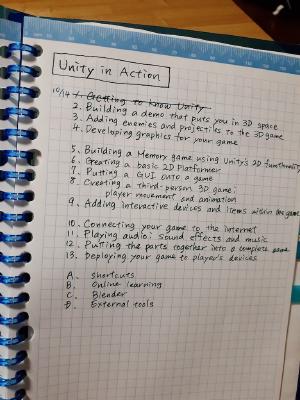 Unity in Action
10/14 1. Getting to know Unity
2. Building a demo that puts you in 3D space
3. Adding enemies and projectiles to the 3D game
4. Developing graphics for your game
5. Building a Memory game using Unity's 2D functionality
6. Creating a basic 2D Platformer
7. Putting a GUI onto a game
8. Creating a third-person 3D game:
player movement and animation
9. Adding interactive devices and items within the game
10. Connecting your game to the internet
11. Playing audio: sound effects and music
12. Putting the parts together into a complete game
13. Deploying your game to player's devices
A. shortcuts
B. Online learning
C. Blender
D. External tools